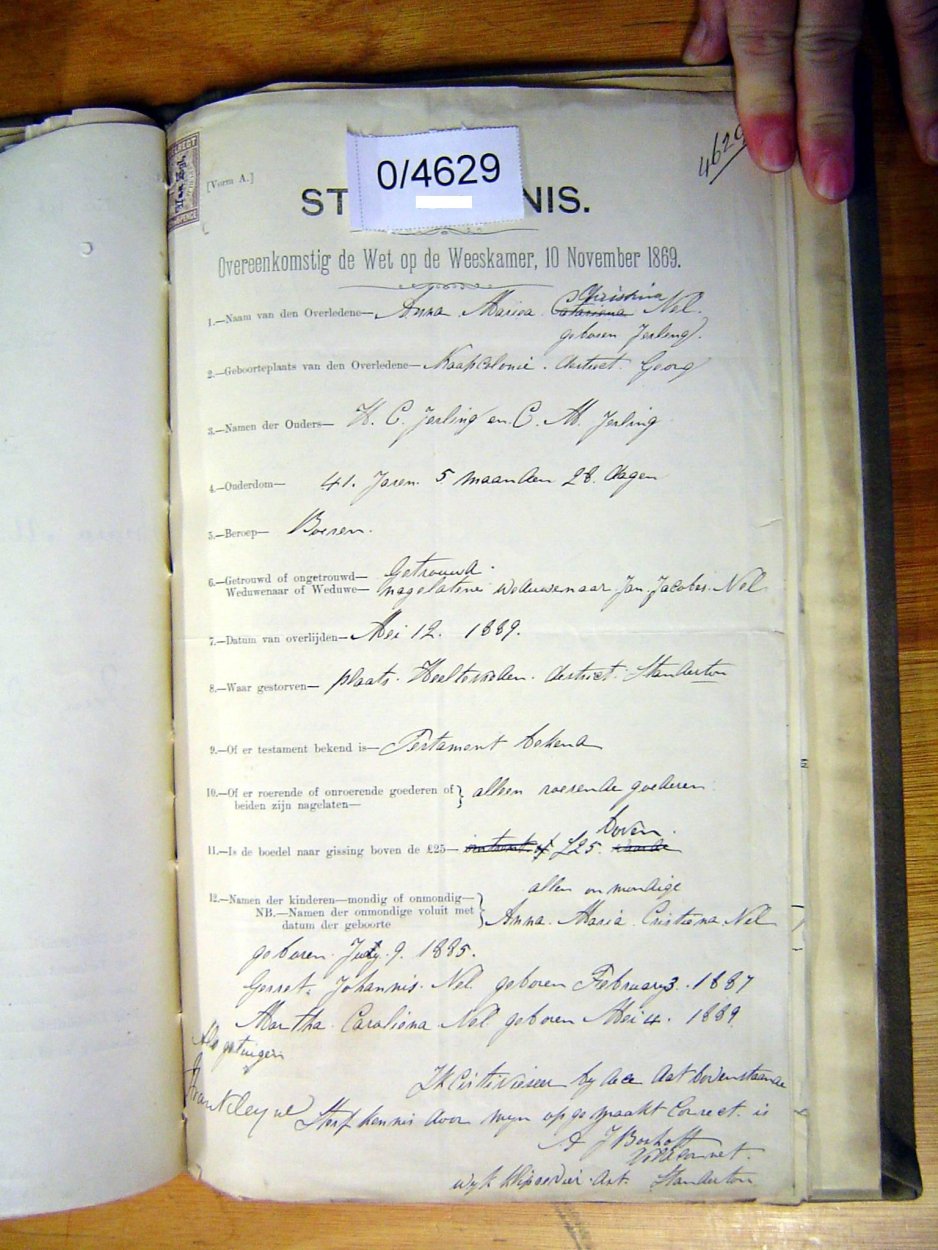 4629
0/4629
[Vorm A.]
ST NIS.
Overeenkomstig de Wet op de Weeskamer, 10 November 1869.
Christina
1.—Naam van den Overledene— Anna Maria Catariena Nel
geboren Jerling
2.—Geboorteplaats van den Overledene— Kaapcolonie. destrict. Georg
3.—Namen der Ouders— H. C. Jerling en C. M. Jerling
4.—Ouderdom— 41. Jaren 5 maanden 28. dagen
5.—Beroep— Boeren.
6.—Getrouwd of ongetrouwd— Getrouwd.
Weduwenaar of Weduwe— nagelatene weduwenaar Jan Jacobus Nel
7.—Datum van overlijden— Mei 12. 1889.
8.—Waar gestorven— plaats. destrict. Standerton
9.—Of er testament bekend is— Testament bekend
10.—Of er roerende of onroerende goederen of
beiden zijn nagelaten— alleen roerende goederen
boven
11.—Is de boedel naar gissing boven de £25— £25.
allen onmondige
12.—Namen der kinderen—mondig of onmondig—
NB.—Namen der onmondige voluit met Anna. Maria. Cristiena Nel
datum der geboorte
geboren July. 9. 1885.
Gerret. Johannis. Nel geboren February 3. 1887
Martha Caroliena Nel geboren Mei 4. 1889
Als getuigen
Ik by deze dat bovenstaande
Sterf kennis door myn opgemaakt Correct is
A J Boshoff
Veldcornet
wyk Kliprivier. dist. Standerton